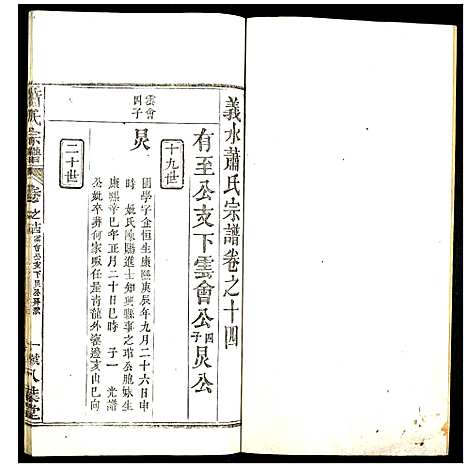 義水蕭氏宗譜卷之十四
有至公支下雲會公四子炅公
十九世
雲會四子
炅
國學字金恒生康熙庚辰年九月二十六日申
時 娶氏陳縣進士知縣事之瑄公胞妹生
康熙辛巳年正月二十日巳時 子一 光譜
公妣卒葬何家畈任是青龍外邊亥山巳向
二十世
蕭氏宗譜
卷之十四 雲會公支下炅公房
八葉堂